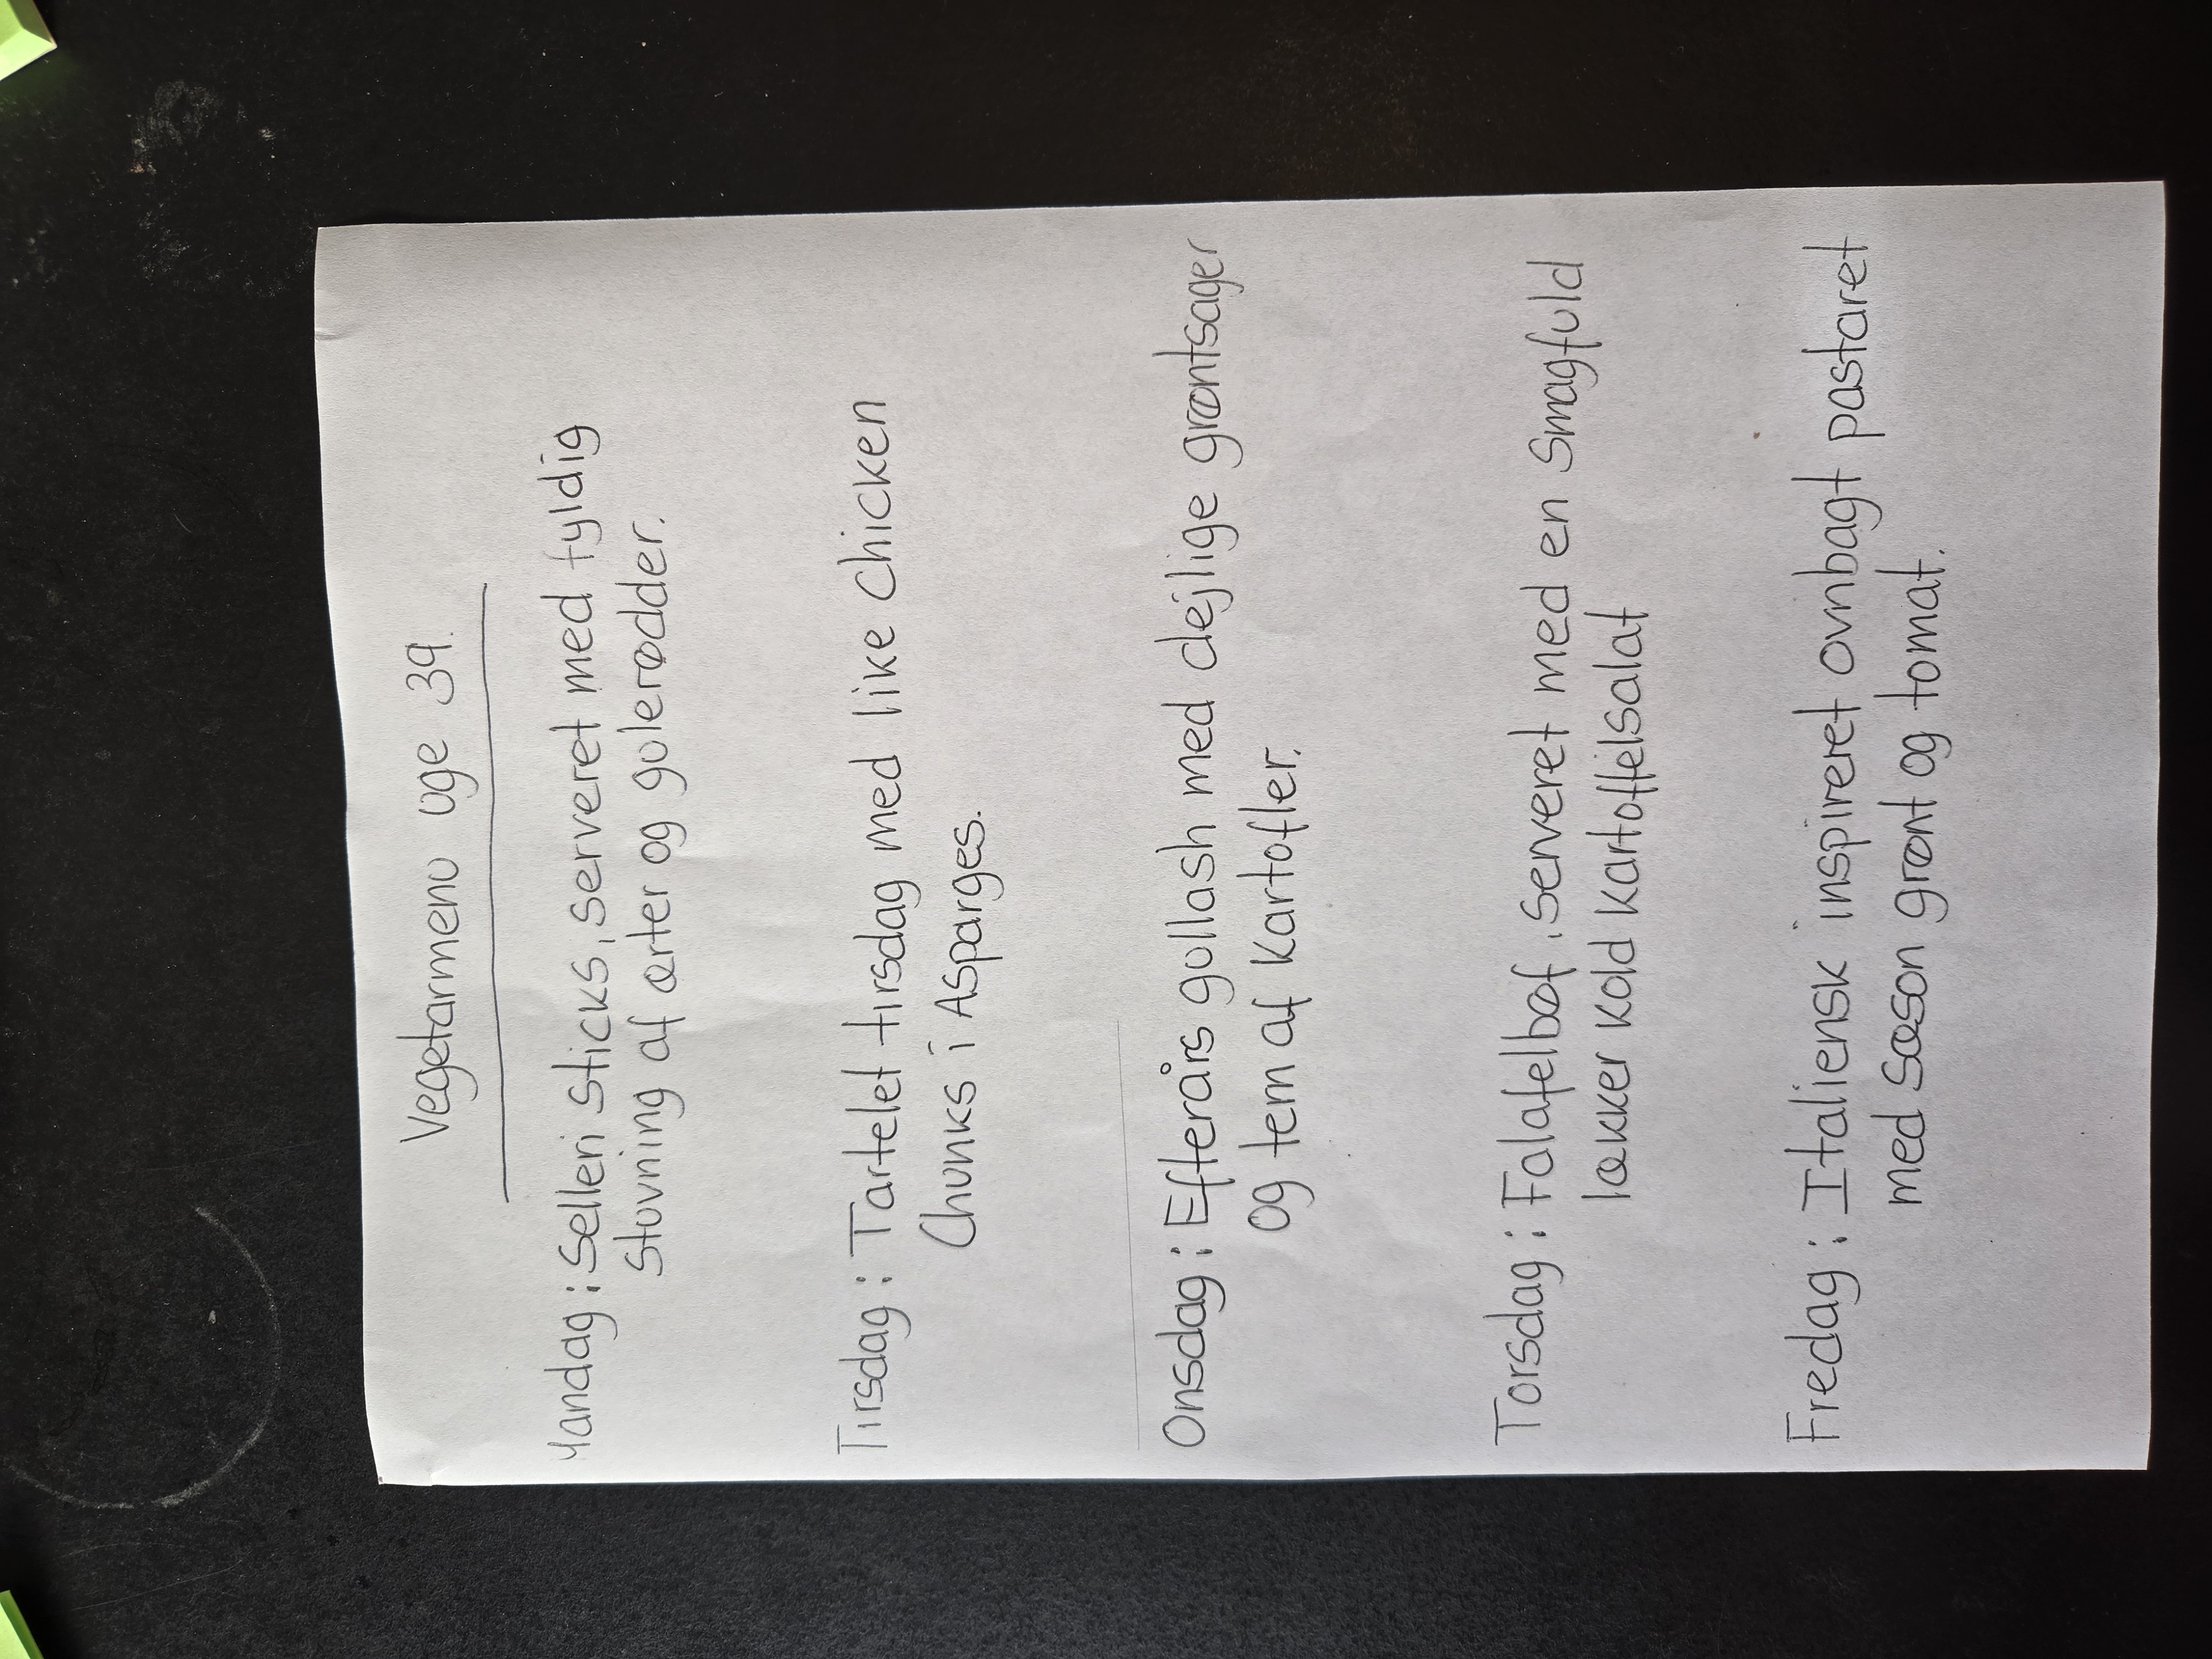 Vegetarmenu uge 39.
Mandag: Selleri sticks, serveret med fyldig
stuvning af ærter og gulerødder.
Tirsdag: Tartelet tirsdag med like chicken
Chunks i Asparges.
Onsdag: Efterårs gullash med dejlige grøntsager
og tern af kartofler.
Torsdag: Falafelbøf, serveret med en smagfuld
lækker kold kartoffelsalat
Fredag: Italiensk inspireret ovnbagt pastaret
med sæson grønt og tomat.